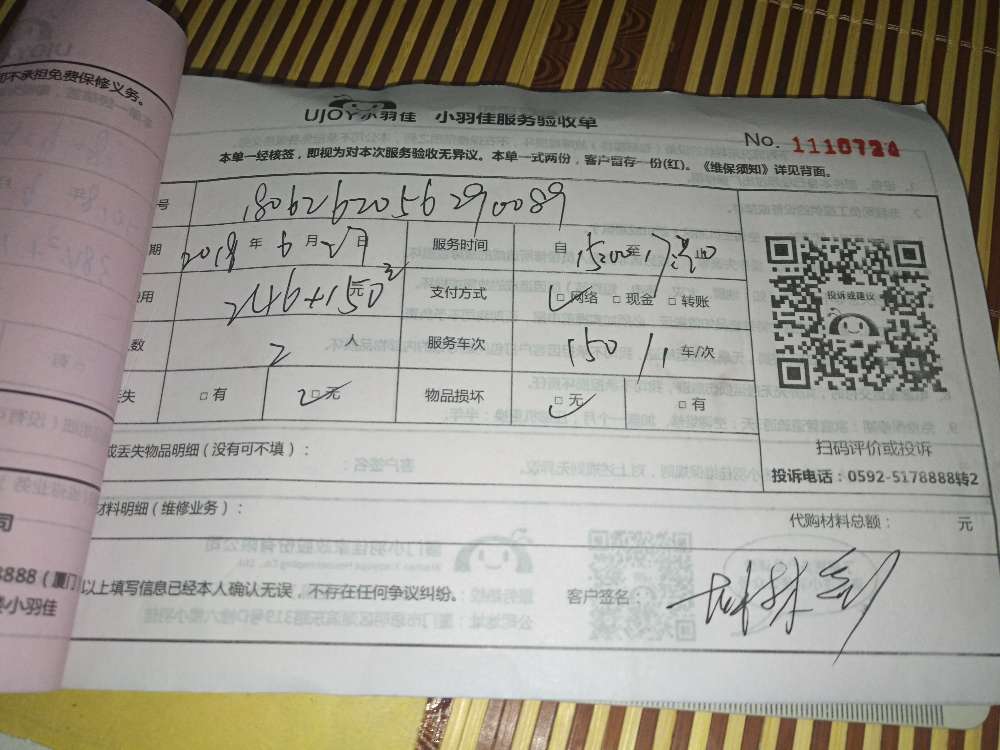 不承担免费保修义务。
UJOY小羽佳 小羽佳服务验收单
No. 1110724
本单一经核签，即视为对本次服务验收无异议。本单一式两份，客户留存一份(红)。《维保须知》详见背面。
号 1806262056290089
期 2018年6月 日 服务时间 自15:00至17 止
用 246+150元 支付方式 ☑网络 □现金 □转账
数 2人 服务车次 150 / 1 车/次
失 □有 ☑无 物品损坏 ☑无 □有
投诉或建议
扫码评价或投诉
投诉电话：0592-5178888转2
或丢失物品明细(没有可不填)：
材料明细(维修业务)： 代购材料总额： 元
司
8888(厦门
小羽佳
以上填写信息已经本人确认无误，不存在任何争议纠纷。 客户签名：